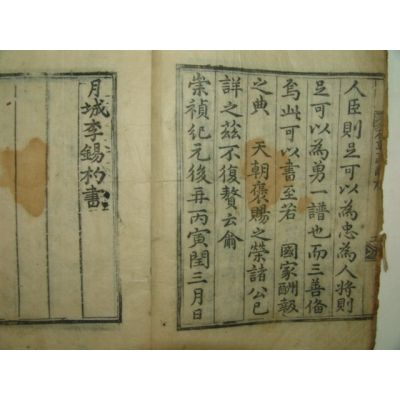 人臣則足可以為忠為人將則
足可以為勇一譜也而三善备
焉此可以書至若 國家酬報
之典 天朝褒賜之榮諸公已
詳之茲不復贅云爾
崇禎紀元後再丙寅閏三月日
月城李錫杓書